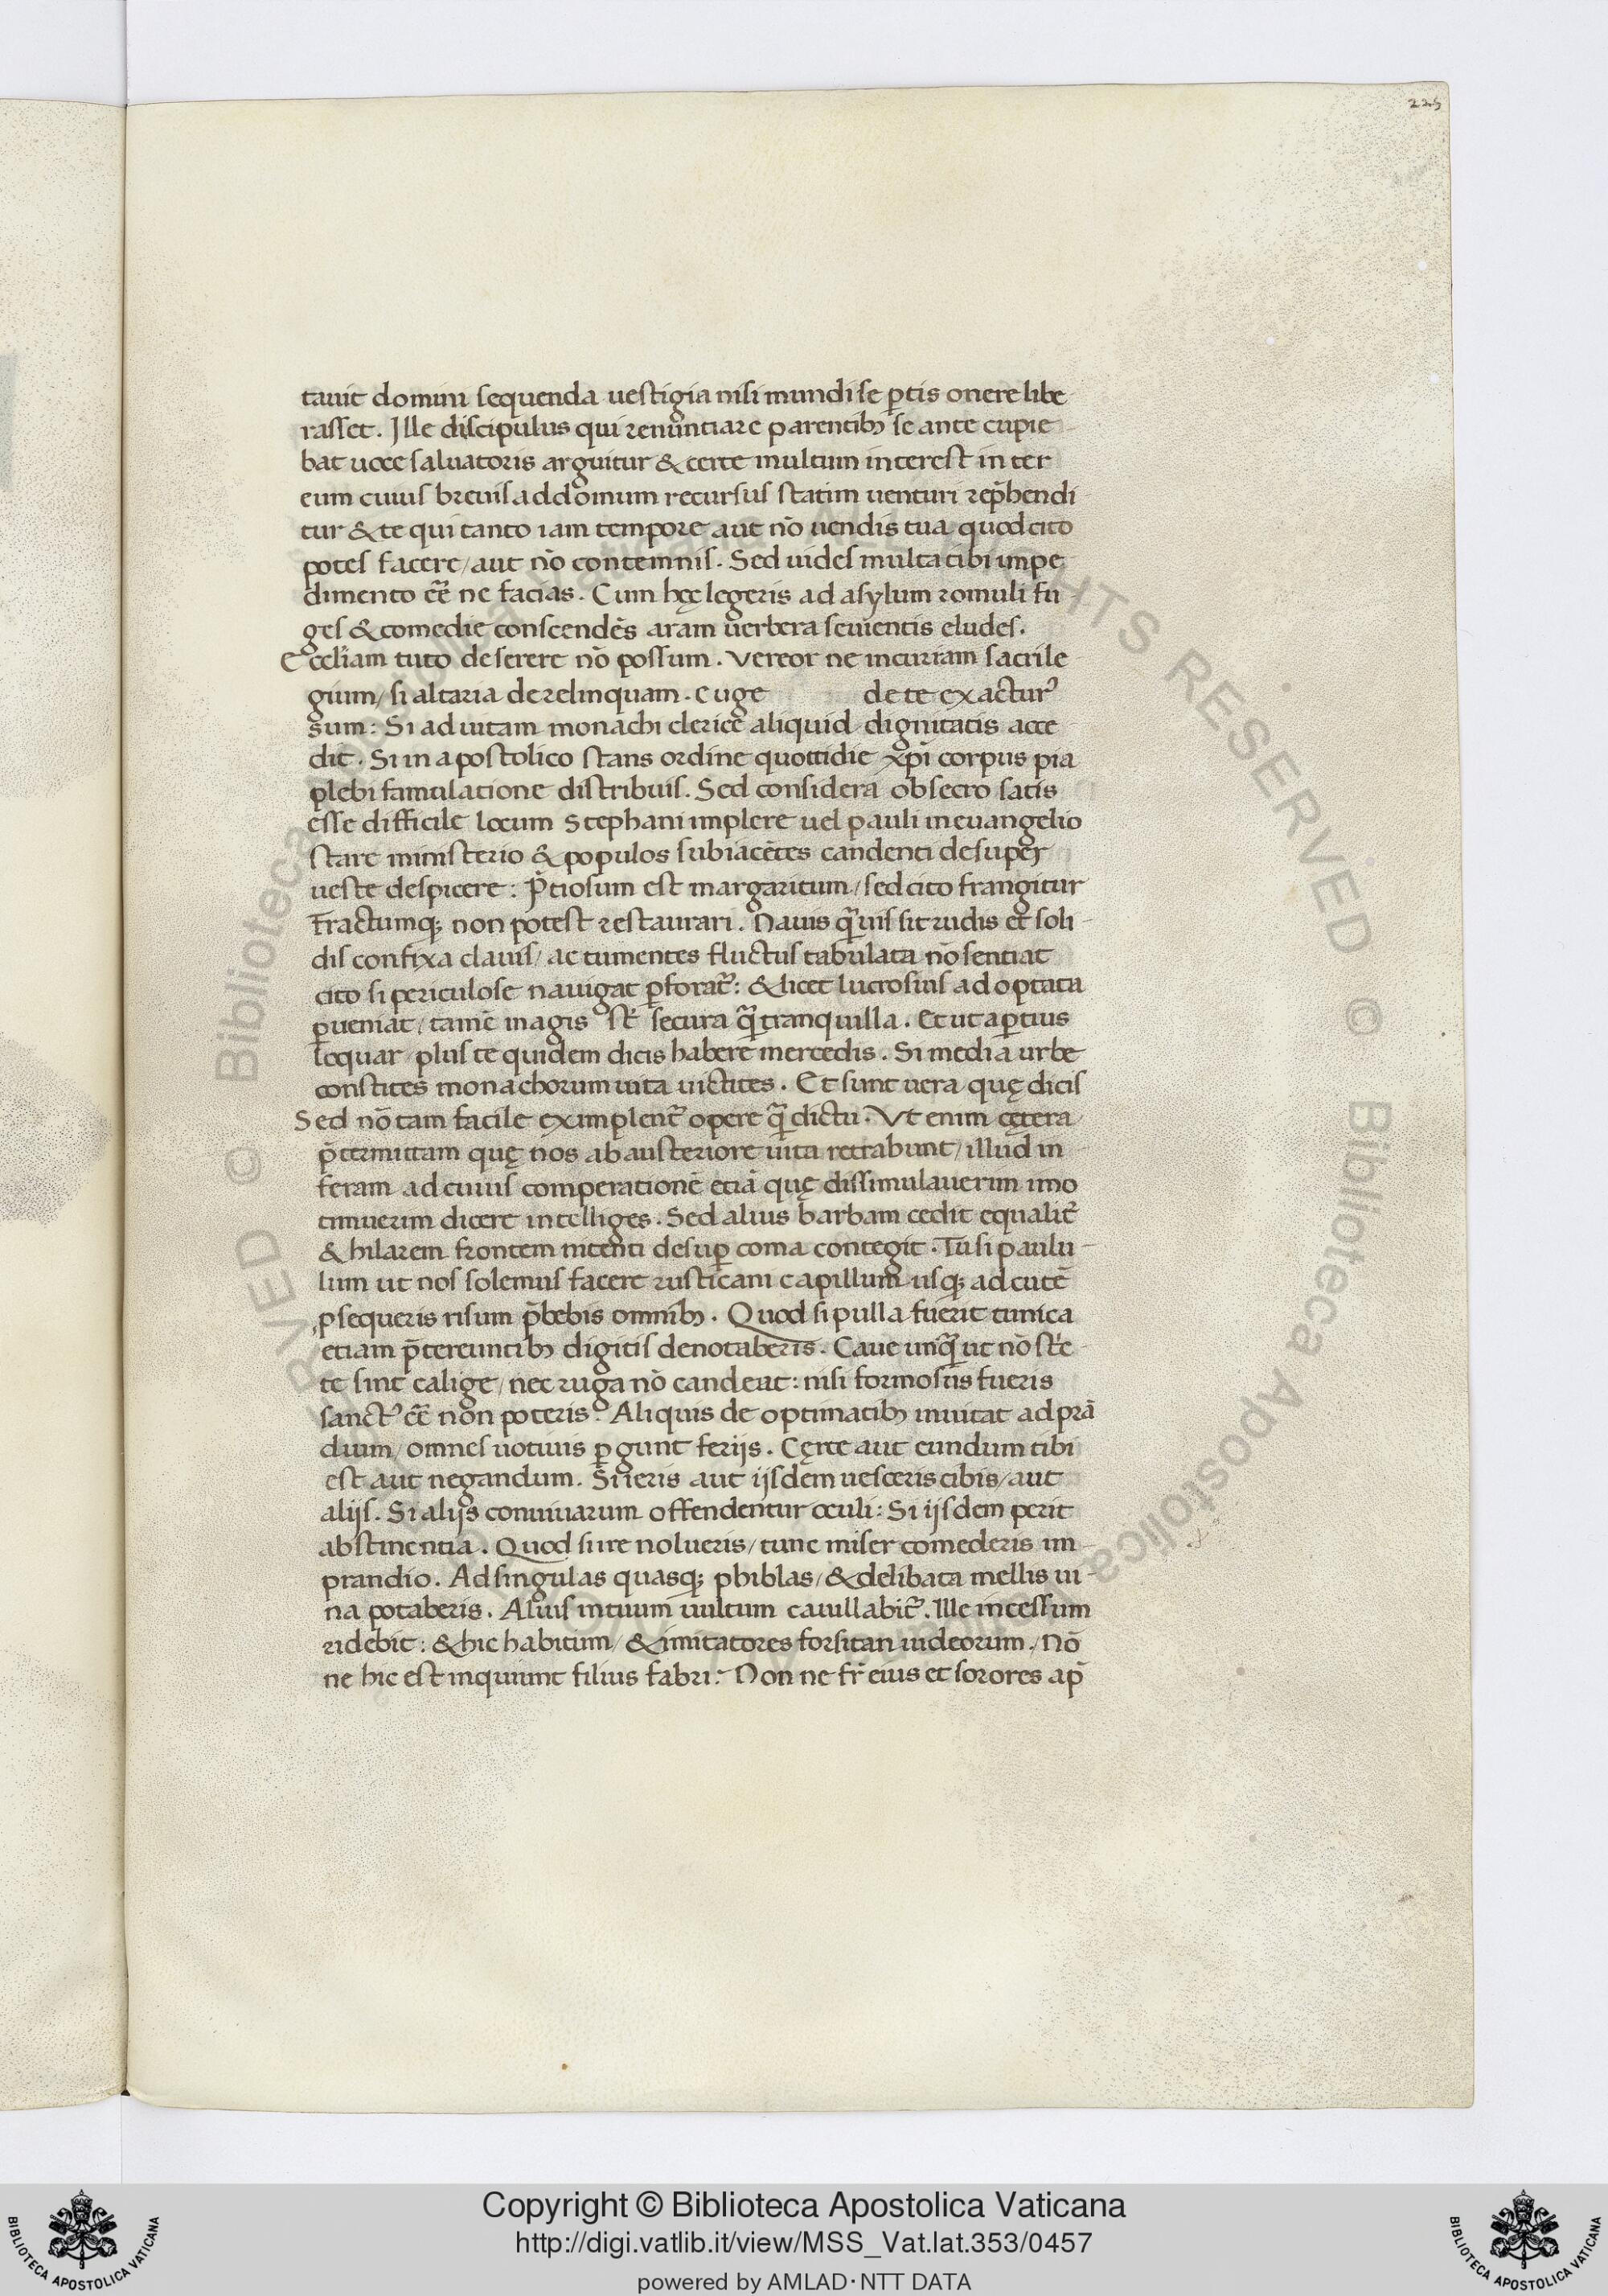 225
tauit domini sequenda uestigia nisi mundi se p̱tis onere libe-
rasset. Ille discipulus qui renuntiare parentibꝫ se ante cupie-
bat uoce saluatoris arguitur & certe multum interest inter
eum cuius breuis ad domum recursus statim uenturi rep̄hendi-
tur & te qui tanto iam tempore aut nō uendis tua quod cito
potes facere / aut nō contemnis. Sed uides multa tibi impe-
dimento eē̄ ne facias. Cum hęc legeris ad asylum romuli fu-
ges & comedie conscendēs aram uerbera seuientis eludes.
Eccl̄iam tuto deserere nō possum. Vereor ne incuriam sacrile-
gium / si altaria derelinquam. Euge de te exactur᾽
sum: Si ad uitam monachi clerice aliquid dignitatis acce-
dit. Si in apostolico stans ordine quottidie xp̄i corpus pia
plebi famulatione distribuis. Sed considera obsecro satis
esse difficile locum Stephani implere uel pauli in euangelio
stare ministerio & populos subiacētes candenti desuper
ueste despicere: P̄tiosum est margaritum / sed cito frangitur
fractumqꝫ non potest restaurari. Nauis q̄uis sit rudis et soli-
dis confixa clauis / ac tumentes fluctus tabulata nō sentiat
cito si periculose nauigat ꝑforat᷑: & licet lucrosius ad optata
ꝑueniat / tamē magis st̄ secura q̄ tranquilla. Et ut aꝑtius
loquar / plus te quidem dicis habere mercedis. Si media urbe
constites monachorum uita uictites. Et sunt uera quę dicis
Sed nō tam facile eximplent᷑ opere q̄ dictu. Vt enim cętera /
p̄termittam quę nos ab austeriore uita retrahunt / illud in-
feram ad cuius comperationē etiā quę dissimulauerim imo
timuerim dicere intelliges. Sed alius barbam cedit equalit᷑
& hilarem frontem nitenti desuꝑ coma contegit. Tu si paulu-
lum ut nos solemus facere rusticani capillum usqꝫ ad cutē
ꝓsequeris risum p̄bebis omnibꝫ. Quod si pulla fuerit tunica
etiam p̄tereuntibꝫ digitis denotaberis. Caue unq̄ ut nō st̄e
te sint calige / nec ruga nō candeat: nisi formosus fueris
sanct᾽ eē̄ non poteris. Aliquis de optimatibꝫ inuitat ad prā
dium / omnes uotiuis ꝑgunt ferijs. Cęrte aut eundum tibi
est aut negandum. Si ieris aut ijsdem uesceris cibis / aut
alijs. Si alijs conuiuarum offendentur oculi: Si ijsdem perit
abstinentia. Quod si ire nolueris / tunc miser comederis im-
prandio. Ad singulas quasqꝫ phiblas / & delibata mellis ui-
na potaberis. Alius in tuum uultum cauillabit᷑. Ille incessum
ridebit: & hic habitum / & imitatores forsitan iudeorum. / Nō
ne hic est inquiunt filius fabri: Non ne fr̄ eius et sorores ap̄
Copyright © Biblioteca Apostolica Vaticana
http://digi.vatlib.it/view/MSS_Vat.lat.353/0457
powered by AMLAD·NTT DATA
BIBLIOTECA APOSTOLICA VATICANA
BIBLIOTECA APOSTOLICA VATICANA